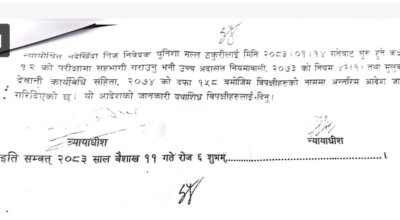 न्यायोचित नदेखिँदा निज निवेदक युनिशा मल्ल ठकुरीलाई मिति २०८३।०१।१४ गतेबाट सुरु हुने कक्षा
१२ को परीक्षामा सहभागी गराउनु भनी उच्च अदालत नियमावली, २०७३ को नियम ४२(१) तथा मुलुकी
देवानी कार्यविधि संहिता, २०७४ को दफा १५८ बमोजिम विपक्षीहरुको नाममा अन्तरिम आदेश जारी
गरिदिएको छ। यो आदेशको जानकारी यथाशिघ्र विपक्षीहरुलाई दिनु।
न्यायाधीश न्यायाधीश
इति सम्वत् २०८३ साल बैशाख ११ गते रोज ६ शुभम्